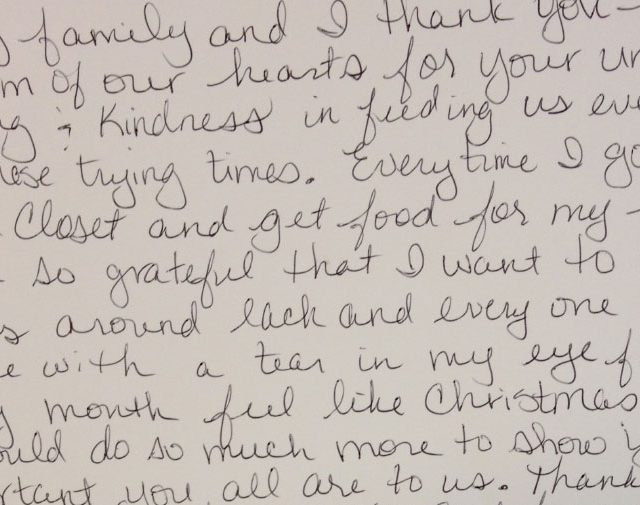 family and I thank you
m of our hearts for your un
g & Kindness in feeding us eve
ese trying times. Everytime I go
Closet and get food for my
so grateful that I want to
s around each and every one
e with a tear in my eye f
y month feel like Christmas
ould do so much more to show y
rtant you all are to us. Thank